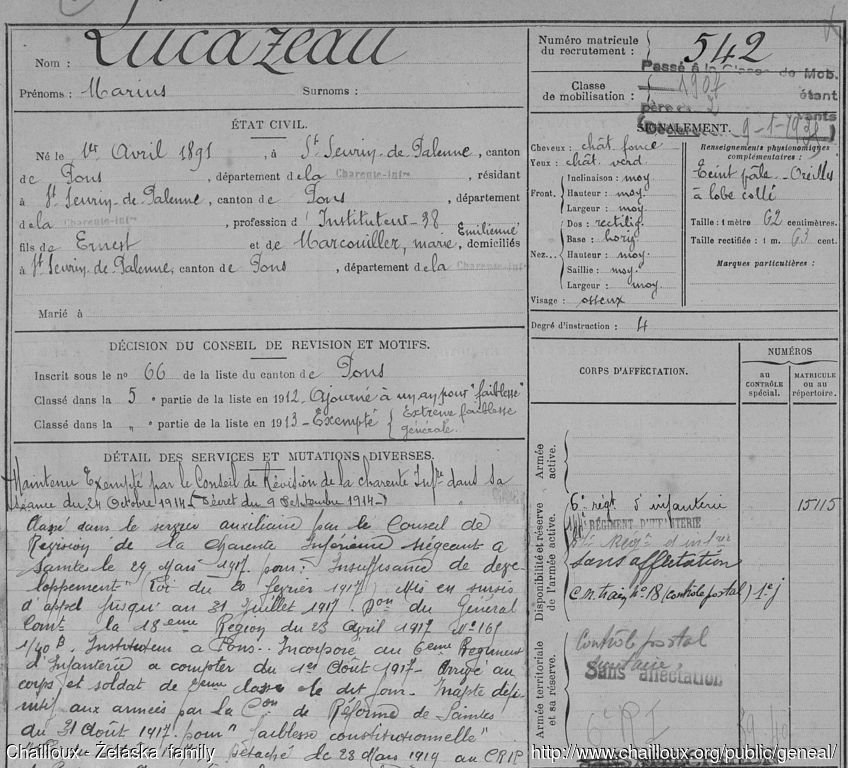 Nom : Lucazeau
Prénoms : Marius Surnoms :
ÉTAT CIVIL.
Né le 1er Avril 1891, à St Seurin-de-Palenne, canton
de Pons, département de la Charente-Infre, résidant
à St Seurin-de-Palenne, canton de Pons, département
de la Charente-Infre, profession d'Instituteur-38
fils de Ernest et de Marcouiller, marie, Emilienne domiciliés
à St Seurin-de-Palenne, canton de Pons, département de la Charente-Infre
Marié à
DÉCISION DU CONSEIL DE REVISION ET MOTIFS.
Inscrit sous le no 66 de la liste du canton de Pons
Classé dans la 5 e partie de la liste en 1912 - Ajourné à un an pour "faiblesse"
Classé dans la " e partie de la liste en 1913 - Exempté { Extrême faiblesse
générale.
DÉTAIL DES SERVICES ET MUTATIONS DIVERSES.
Maintenu Exempté par le Conseil de Révision de la charente Infre dans sa
séance du 24 Octobre 1914 - (Décret du 9 Septembre 1914 -)
Classé dans le service auxiliaire par le Conseil de
Revision de la Charente Inférieure siégeant a
Saintes le 29 Mars 1917. pour: Insuffisance de deve-
loppement" (Loi du 20 fevrier 1917) Mis en sursis
d'appel jusqu'au 31 Juillet 1917. Don du Général
Comt la 18eme Région du 23 Avril 1917 No 165
1/40 B. Instituteur a Pons.. Incorporé au 6eme Regiment
d'Infanterie a compter du 1er Août 1917 - Arrivé au
corps et soldat de 2eme classe le dit jour. Inapte défi-
nitif aux armées par la Con de Réforme de Saintes
du 31 Août 1917. pour "faiblesse constitutionnelle"
Détaché le 28 Mars 1919 au
Numéro matricule
du recrutement : 542
Classe
de mobilisation : 1907
Passé à la Classe de Mob.
étant
père de 2
9-1-1931
SIGNALEMENT.
Cheveux : chât. foncé
Yeux : chât. verd
Front. Inclinaison : moy
Hauteur : moy.
Largeur : moy
Nez... Dos : rectilig.
Base : horiz.
Hauteur : moy
Saillie : moy.
Largeur : moy
Visage : osseux
Renseignements physionomiques
complémentaires :
Teint pâle - Oreilles
à lobe collé
Taille : 1 mètre 62 centimètres.
Taille rectifiée : 1 m. 63 cent.
Marques particulières :
Degré d'instruction : 4
CORPS D'AFFECTATION.
NUMÉROS
AU
CONTRÔLE
SPÉCIAL.
MATRICULE
OU AU
RÉPERTOIRE.
Armée
active.
Disponibilité et réserve
de l'armée active.
6e régt d'infanterie 15115
RÉGIMENT D'INFANTERIE
sans affectation
C.M. train no 18 (contrôle postal) 1e j
Armée territoriale
et sa réserve.
Contrôle postal
Sans affectation
Chailloux - Zelaska family
http://www.chailloux.org/public/geneal/